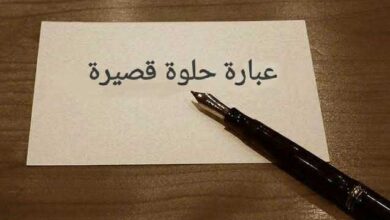 عبارة حلوة قصيرة